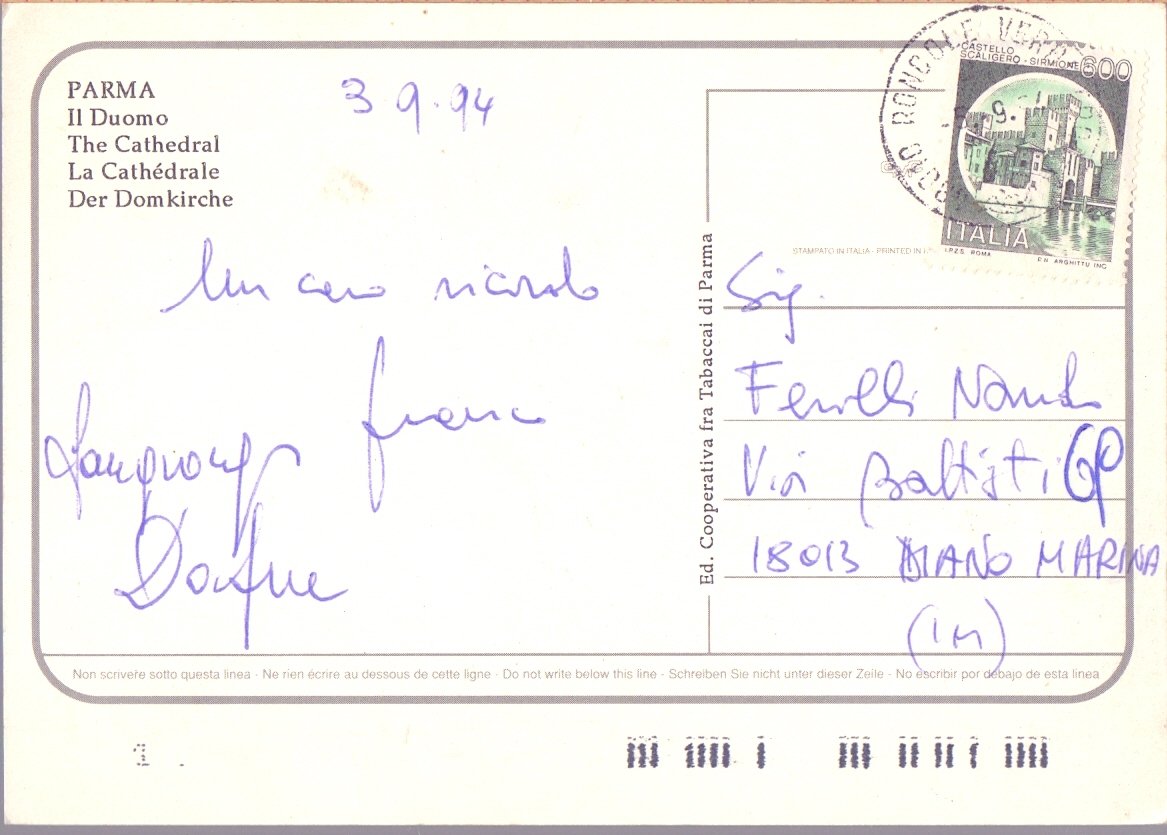 PARMA
Il Duomo
The Cathedral
La Cathédrale
Der Domkirche
3 9.94
Un caro ricordo
Franco
Dafne
Ed. Cooperativa fra Tabaccai di Parma
STAMPATO IN ITALIA - PRINTED IN
CASTELLO
SCALIGERO - SIRMIONE 600
ITALIA
I.P.Z.S. ROMA
E.N. ARGHITTU INC.
RONCOLE VERDI
9.
Sig.
Nando
Via Battisti
18013 DIANO MARINA
(IM)
Non scrivere sotto questa linea - Ne rien écrire au dessous de cette ligne - Do not write below this line - Schreiben Sie nicht unter dieser Zeile - No escribir por debajo de esta linea
1